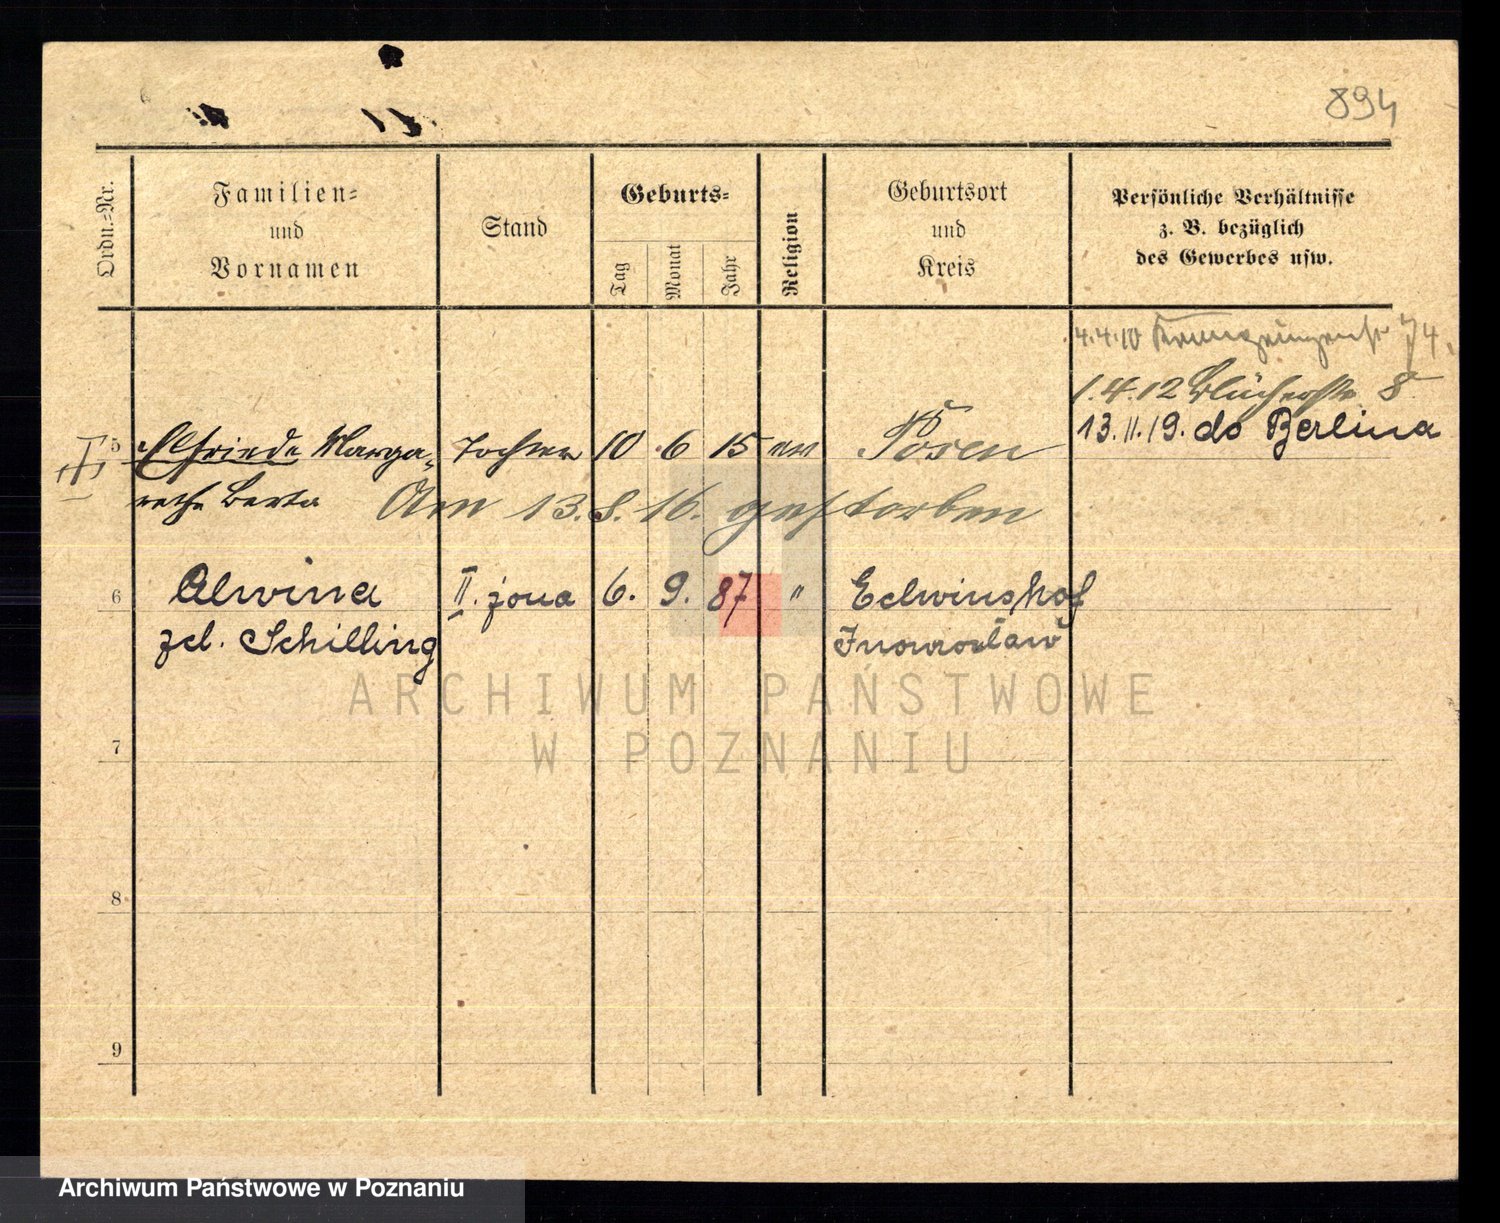 894
Ordn.-Nr.
Familien-
und
Vornamen
Stand
Geburts-
Tag
Monat
Jahr
Religion
Geburtsort
und
Kreis
Persönliche Verhältnisse
z. B. bezüglich
des Gewerbes usw.
4.4.10 74.
1.4.12 Blücherstr. 8
13.11.19. do Berlina
5 Elfriede Marga- Tochter 10 6 15 ev Posen
rethe Berta Am 13.8.16. gestorben
6 Alwina II. żona 6. 9. 87 " Edwinshof
zd. Schilling Inowrocław
7
8
9
ARCHIWUM PAŃSTWOWE
W POZNANIU
Archiwum Państwowe w Poznaniu